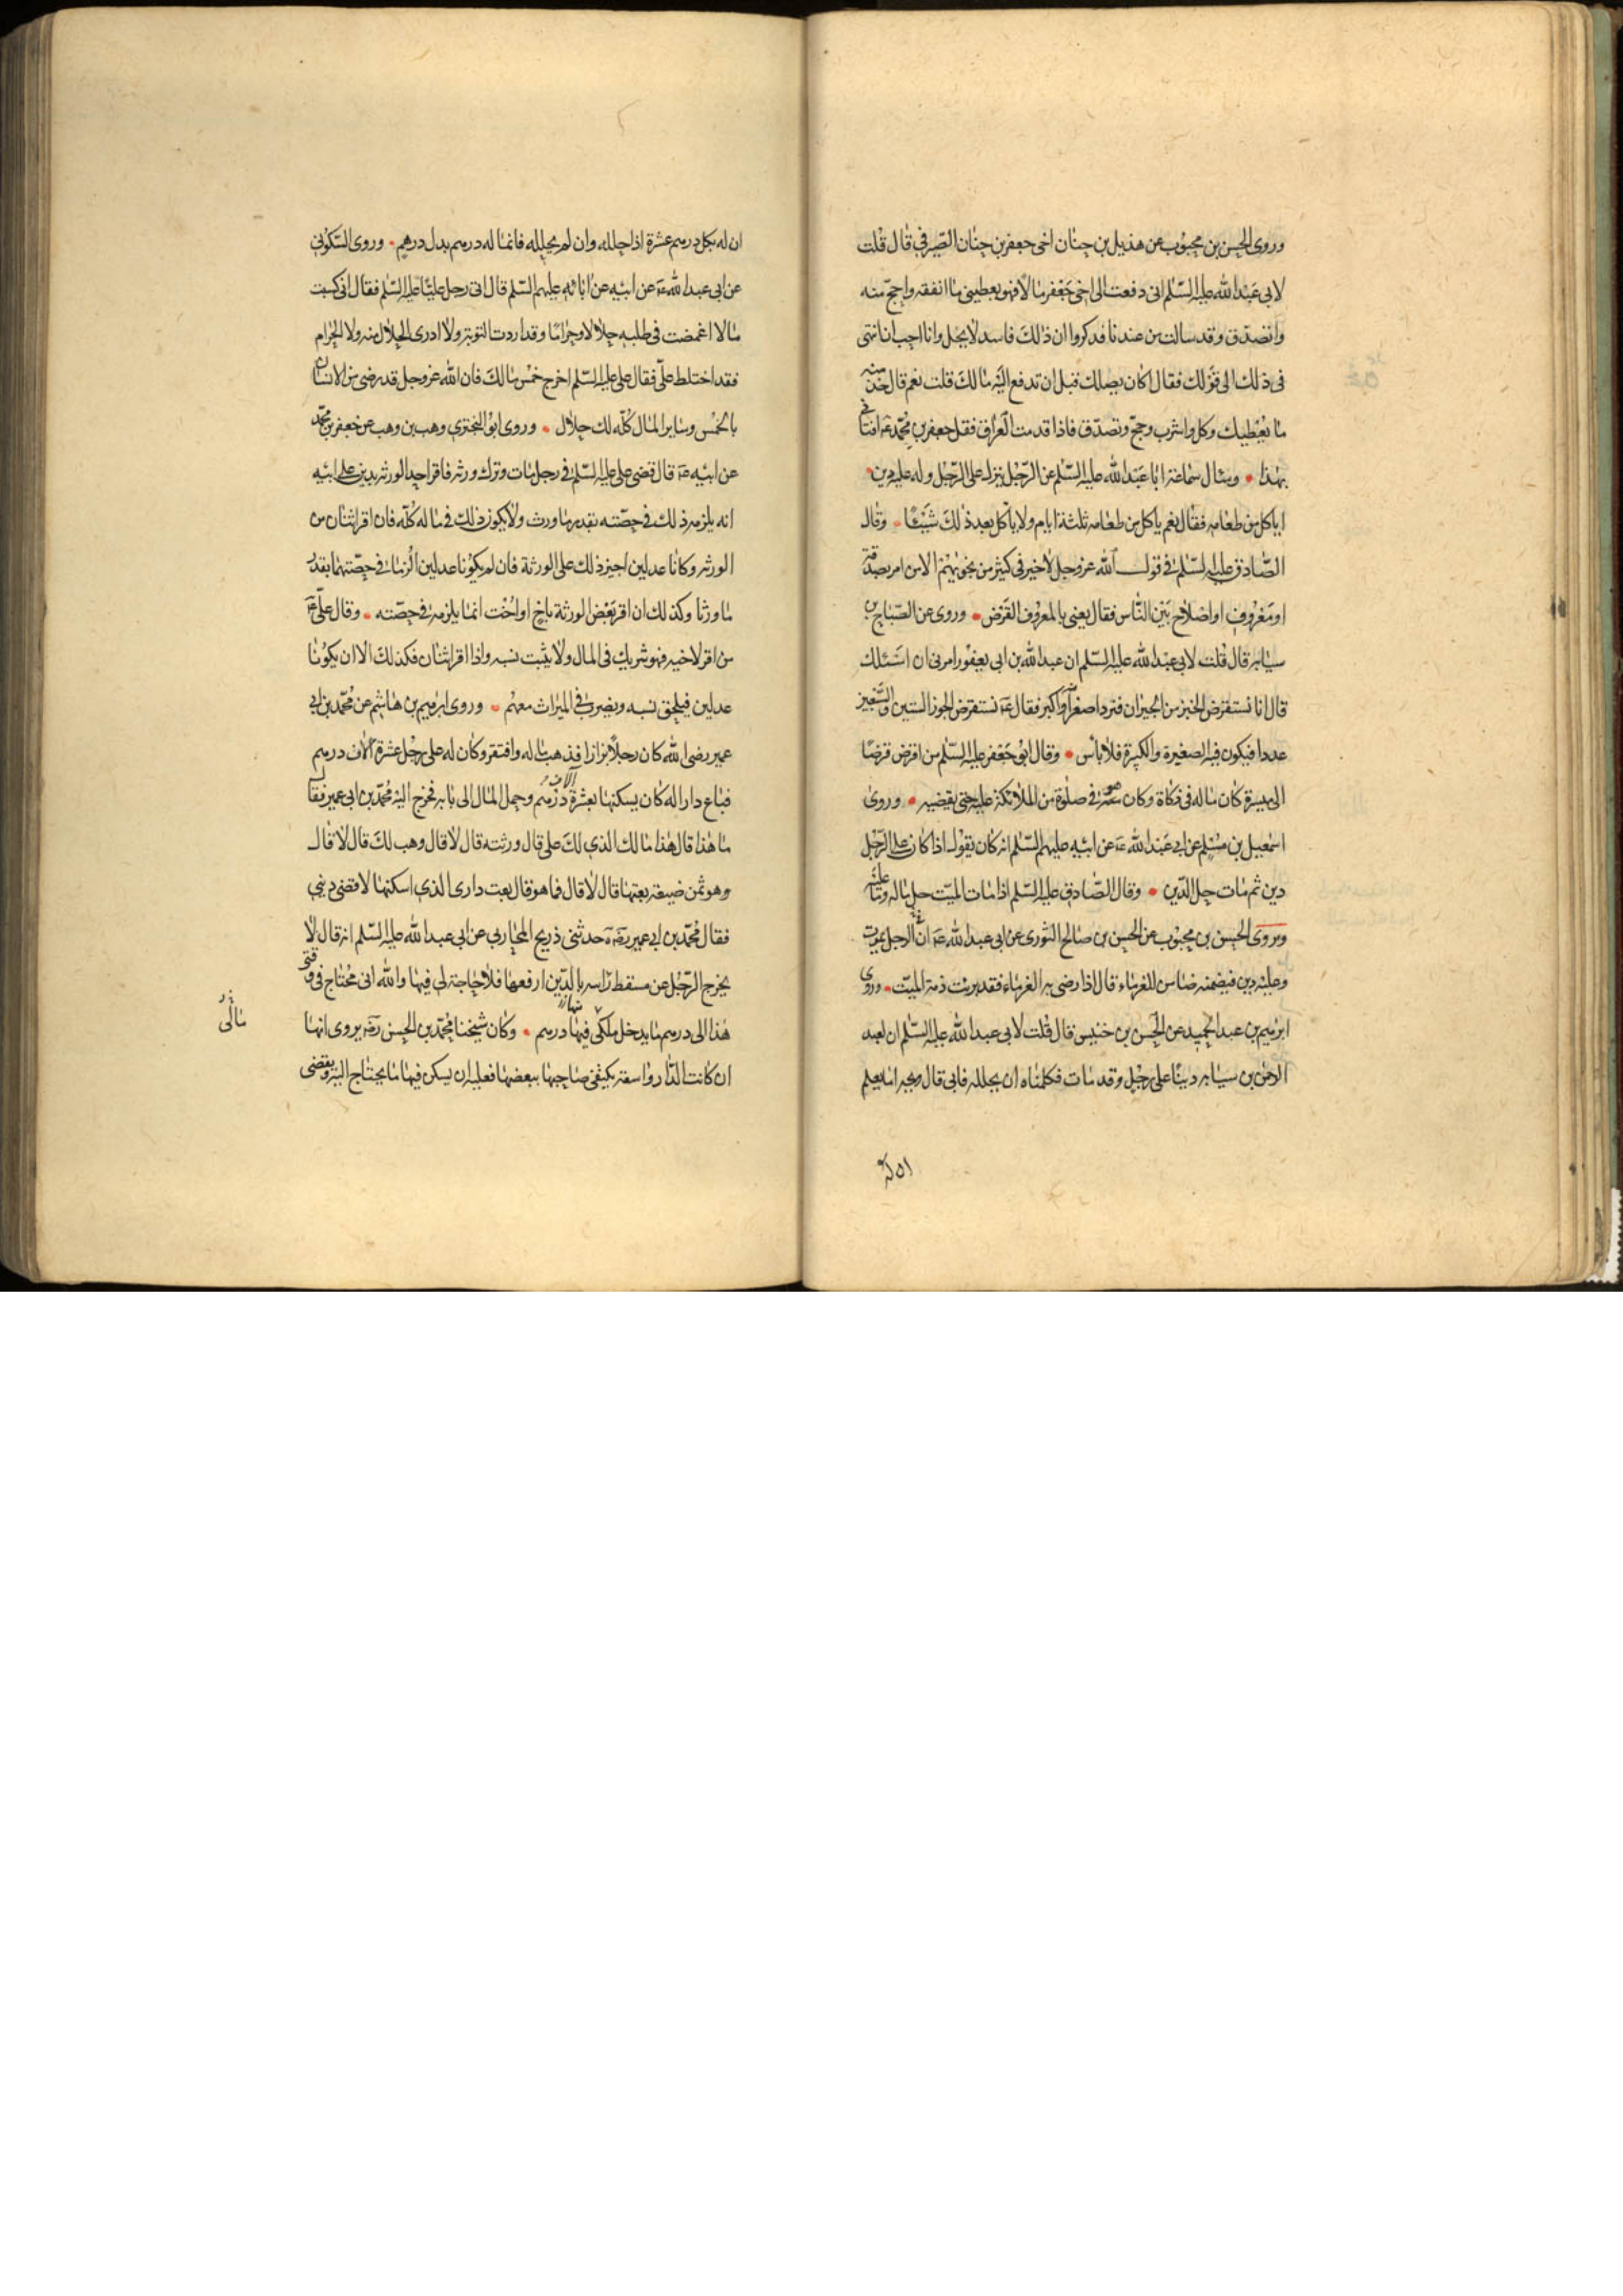 وروى الحسن بن محبوب عن هذيل بن حنان اخى جعفر بن حنان الصيرفي قال قلت
لابى عبد الله عليه السلام انى دفعت الى اخى جعفر مالا فهو يعطينى ما انفقه واحج منه
واتصدق وقد سالت من عندنا فذكروا ان ذلك فاسد لا يحل وانا احب ان انتهى
فى ذلك الى قولك فقال اكان يصلك قبل ان تدفع اليه مالك قلت نعم قال خذ منه
ما يعطيك وكل واشرب وحج وتصدق فاذا قدمت العراق فقل جعفر بن محمد ع افتانى
بهذا وسئال سماعة ابا عبد الله عليه السلام عن الرجل ينزل على الرجل وله عليه دين
اياكل من طعامه فقال نعم ياكل من طعامه ثلثة ايام ولا ياكل بعد ذلك شيئا وقال
الصادق عليه السلام فى قول الله عز وجل لا خير فى كثير من نجويهم الا من امر بصدقة
او معروف او اصلاح بين الناس فقال يعنى بالمعروف القرض وروى عن الصباح بن
سيابه قال قلت لابى عبد الله عليه السلام ان عبد الله بن ابى يعفور امرنى ان اسئلك
قال انا نستقرض الخبز من الجيران فنرد اصغر او اكبر فقال ع نستقرض الجوز الستين والسبعين
عددا فيكون فيه الصغيرة والكبيرة فلا باس وقال ابو جعفر عليه السلام من اقرض قرضا
الى ميسرة كان ماله فى زكاة وكان هو فى صلوة من الملائكة عليه حتى يقضيه وروى
اسمعيل بن مسلم عن ابى عبد الله ع عن ابيه عليهم السلام انه كان يقول اذا كان على الرجل
دين ثم مات حل الدين وقال الصادق عليه السلام اذا مات الميت حل ماله وما عليه
وروى الحسن بن محبوب عن الحسن بن صالح الثورى عن ابى عبد الله ع فى ان الرجل يموت
وعليه دين فيضمنه ضامن للغرماء قال اذا رضى به الغرماء فقد برئت ذمة الميت وروى
ابرهيم بن عبد الحميد عن الحسن بن خنيس قال قلت لابى عبد الله عليه السلام ان لعبد
الرحمن بن سيابه دينا على رجل وقد مات فكلمناه ان يحلله فابى قال ويحه اما يعلم
ان له
ان له بكل درهم عشرة اذا حلله وان لم يحلله فانما له درهم بدل درهم وروى السكونى
عن ابى عبد الله ع عن ابيه عن ابائه عليهم السلام قال اتى رجل عليا عليه السلم فقال انى كسبت
مالا اغمضت فى طلبه حلالا وحراما وقد اردت التوبة ولا ادرى الحلال منه ولا الحرام
فقد اختلط على فقال على عليه السلم اخرج خمس مالك فان الله عز وجل قد رضى من الانسان
بالخمس وساير المال كله لك حلال وروى ابو البخترى وهب بن وهب عن جعفر بن محمد
عن ابيه ع قال قضى على عليه السلم فى رجل مات وترك ورثه فاقر احد الورثه بدين على ابيه
انه يلزمه ذلك فى حصته بقدر ما ورث ولا يكون ذلك فى ماله كله فان اقر اثنان من
الورثه وكانا عدلين اجيز ذلك على الورثة فان لم يكونا عدلين الزما فى حصتهما بقدر
ما ورثا وكذلك ان اقر بعض الورثة باخ او اخت انما يلزمه فى حصته وقال على ع
من اقر لاخيه فهو شريك فى المال ولا يثبت نسبه واذا اقر اثنان فكذلك الا ان يكونا
عدلين فيلحق نسبه ويضرب فى الميراث معهم وروى ابرهيم بن هاشم عن محمد بن ابى
عمير رضى الله كان رجلا بزازا فذهب ماله وافتقر وكان له على رجل عشرة الاف درهم
فباع دارا له كان يسكنها بعشرة آلاف درهم وحمل المال الى بابه فخرج اليه محمد بن ابى عمير فقال
ما هذا قال هذا مالك الذى لك على قال ورثته قال لا قال وهب لك قال لا قال
وهو ثمن ضيعة بعتها قال لا قال فما هو قال بعت دارى الذى اسكنها لاقضى دينى
فقال محمد بن ابى عمير ره حدثنى ذريح المحاربى عن ابى عبد الله عليه السلم انه قال لا
يخرج الرجل عن مسقط راسه بالدين ارفعها فلا حاجة لى فيها والله انى محتاج فى وقتى
هذا الى درهم ما يدخل ملكى منها درهم وكان شيخنا محمد بن الحسن ره يروى انها
ان كانت الدار واسعة يكتفى صاحبها ببعضها فعليه ان يسكن فيها ما يحتاج اليه ويقضى